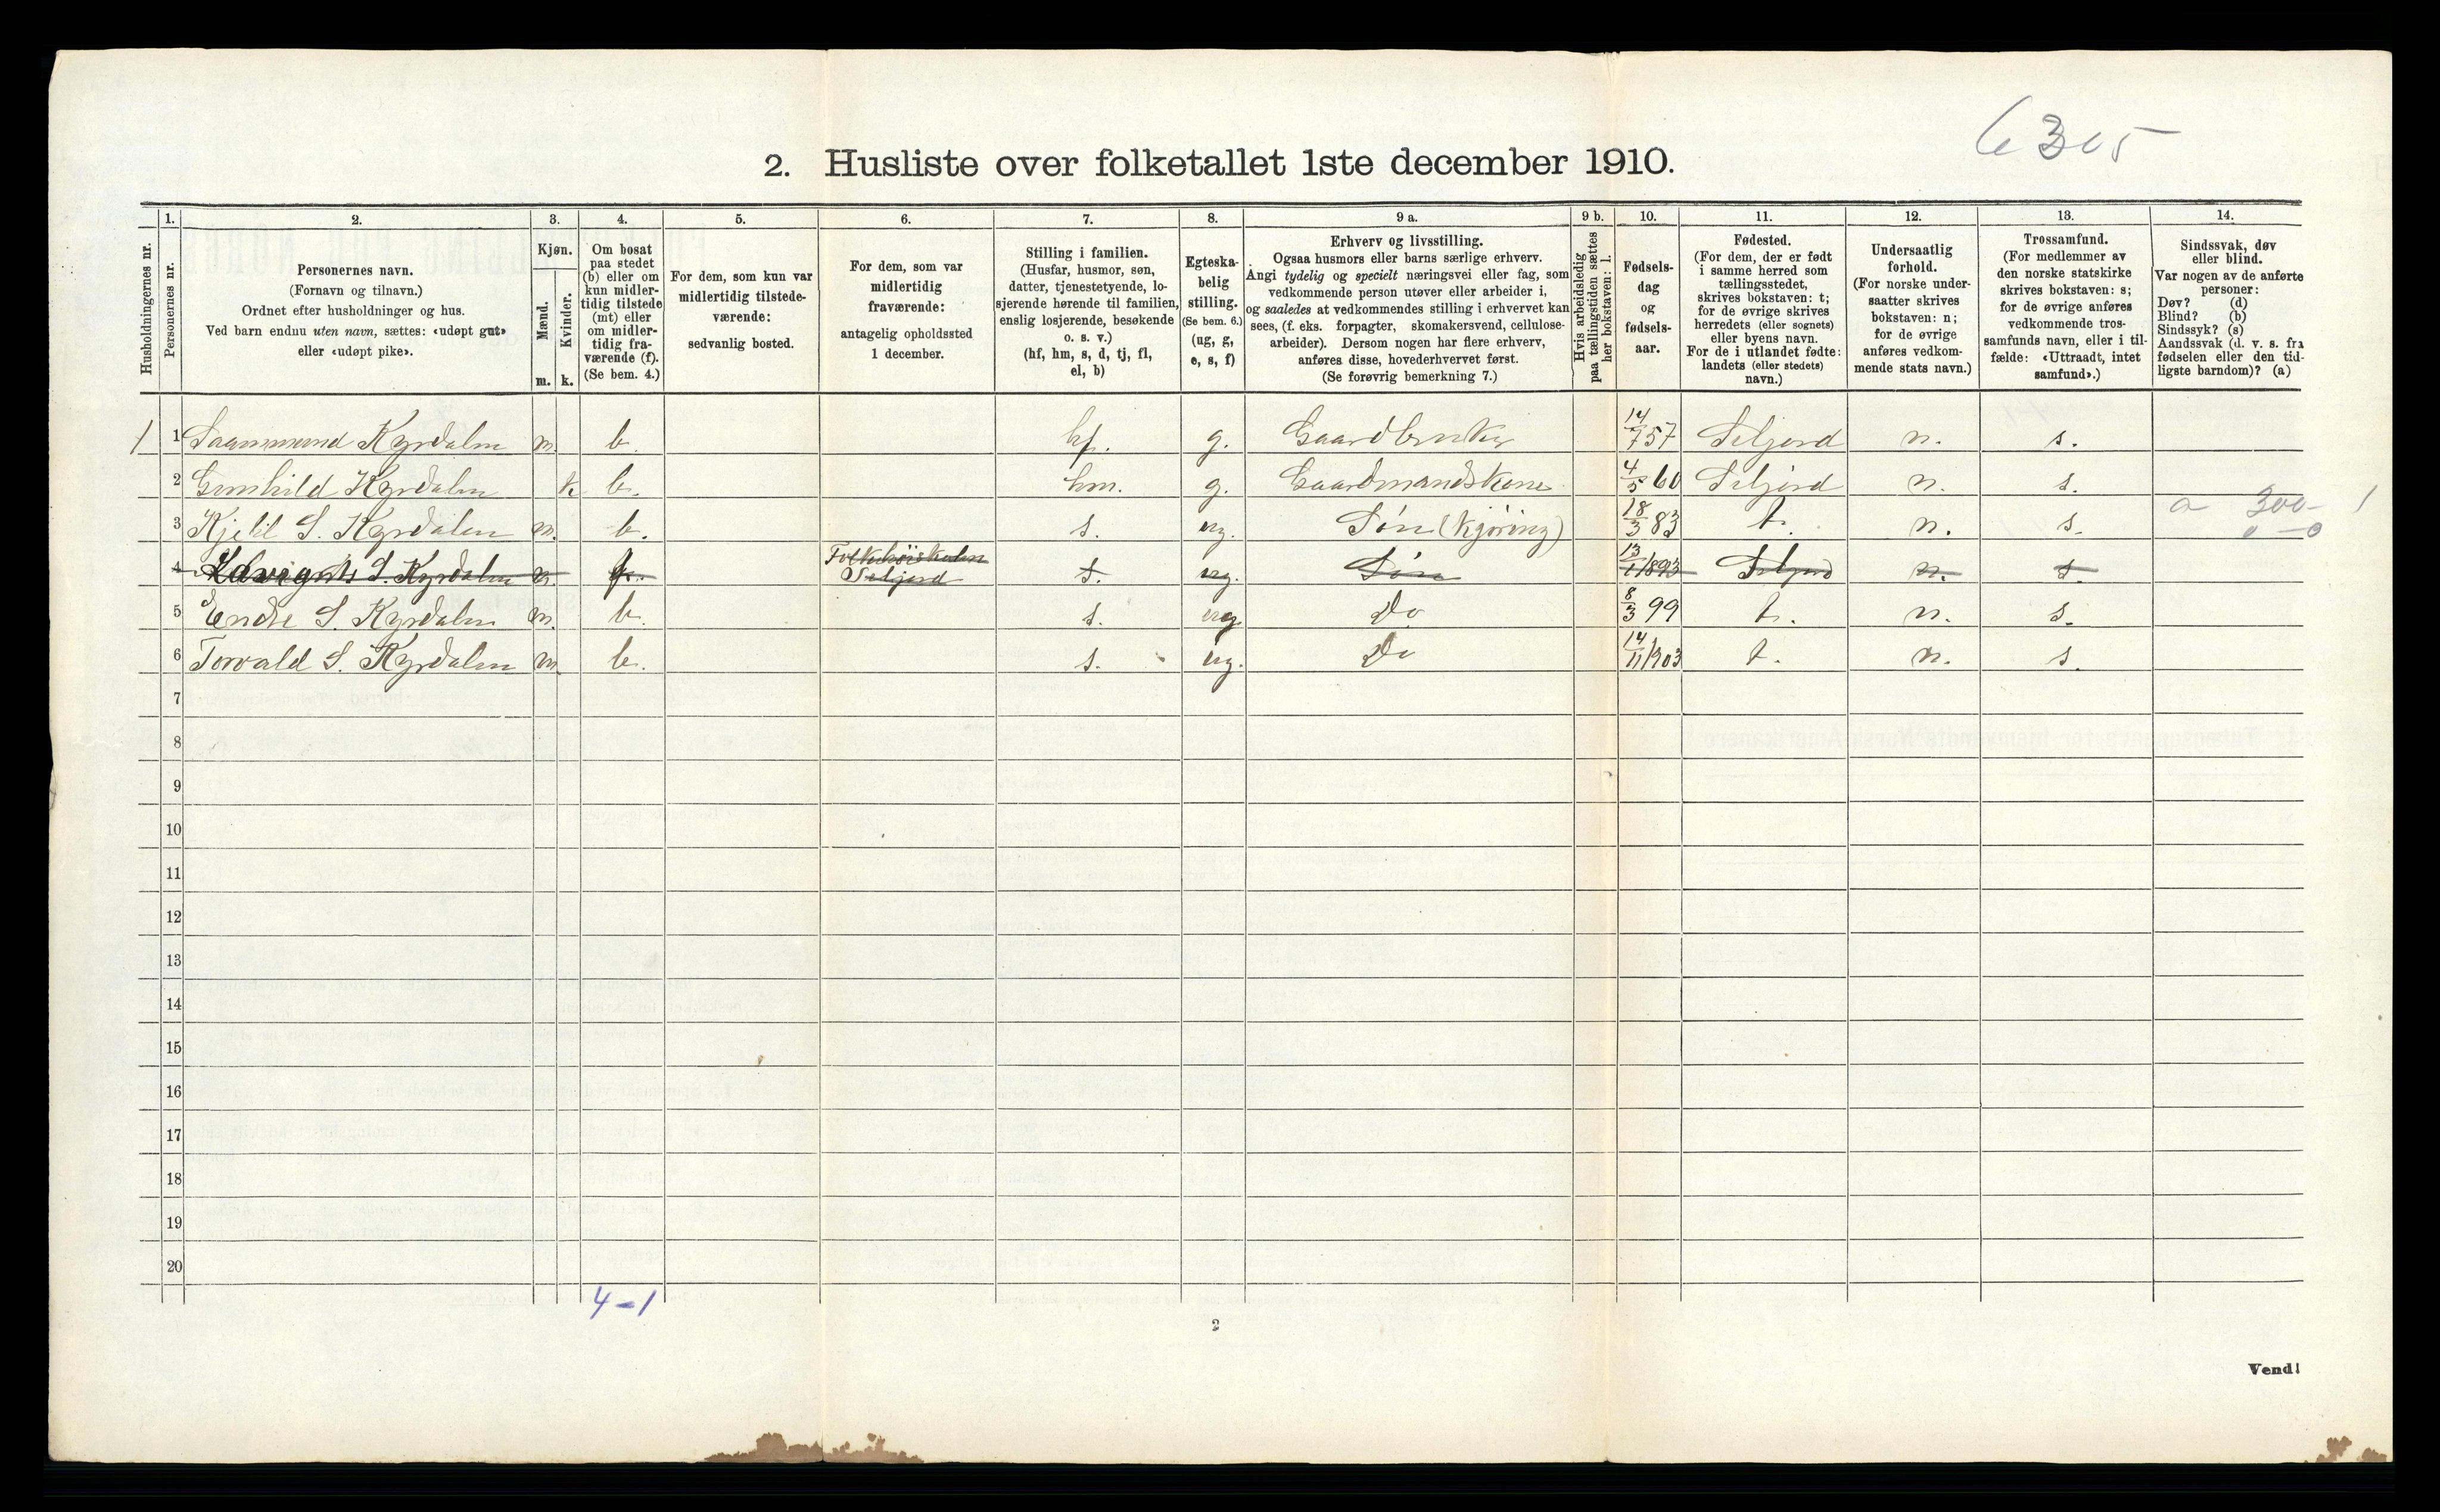 6305
2. Husliste over folketallet 1ste december 1910.
Husholdningernes nr.
1. Personernes nr.
2. Personernes navn. (Fornavn og tilnavn.) Ordnet efter husholdninger og hus. Ved barn endnu uten navn, sættes: «udøpt gut» eller «udøpt pike».
3. Kjøn. Mænd. m. Kvinder. k.
4. Om bosat paa stedet (b) eller om kun midlertidig tilstede (mt) eller om midlertidig fraværende (f). (Se bem. 4.)
5. For dem, som kun var midlertidig tilstedeværende: sedvanlig bosted.
6. For dem, som var midlertidig fraværende: antagelig opholdssted 1 december.
7. Stilling i familien. (Husfar, husmor, søn, datter, tjenestetyende, losjerende hørende til familien, enslig losjerende, besøkende o. s. v.) (hf, hm, s, d, tj, fl, el, b)
8. Egteskabelig stilling. (Se bem. 6.) (ug, g, e, s, f)
9 a. Erhverv og livsstilling. Ogsaa husmors eller barns særlige erhverv. Angi tydelig og specielt næringsvei eller fag, som vedkommende person utøver eller arbeider i, og saaledes at vedkommendes stilling i erhvervet kan sees, (f. eks. forpagter, skomakersvend, cellulosearbeider). Dersom nogen har flere erhverv, anføres disse, hovederhvervet først. (Se forøvrig bemerkning 7.)
9 b. Hvis arbeidsledig paa tællingstiden sættes her bokstaven: l.
10. Fødselsdag og fødselsaar.
11. Fødested. (For dem, der er født i samme herred som tællingsstedet, skrives bokstaven: t; for de øvrige skrives herredets (eller sognets) eller byens navn. For de i utlandet fødte: landets (eller stedets) navn.)
12. Undersaatlig forhold. (For norske undersaatter skrives bokstaven: n; for de øvrige anføres vedkommende stats navn.)
13. Trossamfund. (For medlemmer av den norske statskirke skrives bokstaven: s; for de øvrige anføres vedkommende trossamfunds navn, eller i tilfælde: «Uttraadt, intet samfund».)
14. Sindssvak, døv eller blind. Var nogen av de anførte personer: Døv? (d) Blind? (b) Sindssyk? (s) Aandssvak (d. v. s. fra fødselen eller den tidligste barndom)? (a)
1 1 Saammund Kyrdalen m. b. hf. g. Gaardbruker 14/7 57 Seljord n. s.
2 Gunhild Kyrdalen k b. hm. g. Gaardmandskone 4/5 60 Seljord n. s.
3 Kjetil S. Kyrdalen m. b. s. ug. Søn (Kjøring) 18/3 83 t. n. s. a 300- 1
0-0
4 S. Kyrdalen m. f. Folkehøiskolen Seljord s. ug. Søn 13/11 1893 Seljord n. s.
5 Endre S. Kyrdalen m. b. s. ug. Do 8/3 99 t. n. s.
6 Torvald S. Kyrdalen m. b. s. ug. Do 14/11 1903 t. n. s.
7
8
9
10
11
12
13
14
15
16
17
18
19
20
4-1
2
Vend!